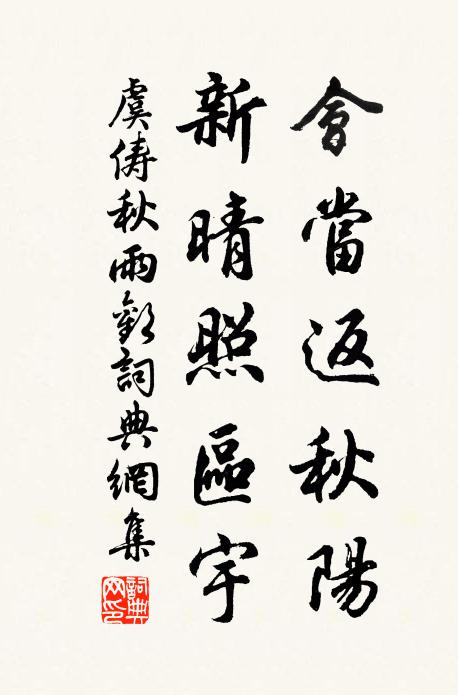 會當返秋陽
新晴照區宇
虞儔秋雨歎詞典網集
詞典網印